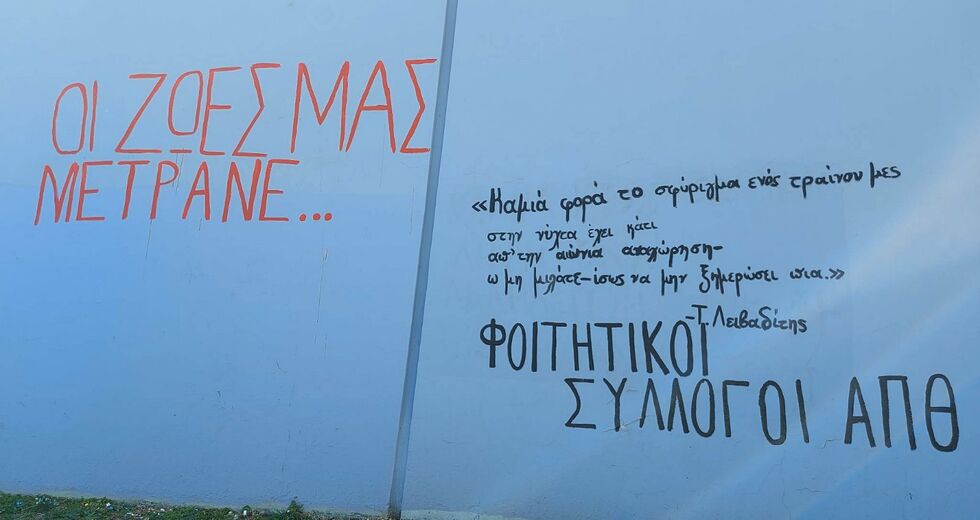 ΟΙ ΖΩΕΣ ΜΑΣ
ΜΕΤΡΑΝΕ...
«Καμιά φορά το σφύριγμα ενός τραίνου μες
στην νύχτα έχει κάτι
απ' την αιώνια αποχώρηση-
ω μη μιλάτε-ίσως να μην ξημερώσει πια.»
-Τ. Λειβαδίτης
ΦΟΙΤΗΤΙΚΟΙ
ΣΥΛΛΟΓΟΙ ΑΠΘ